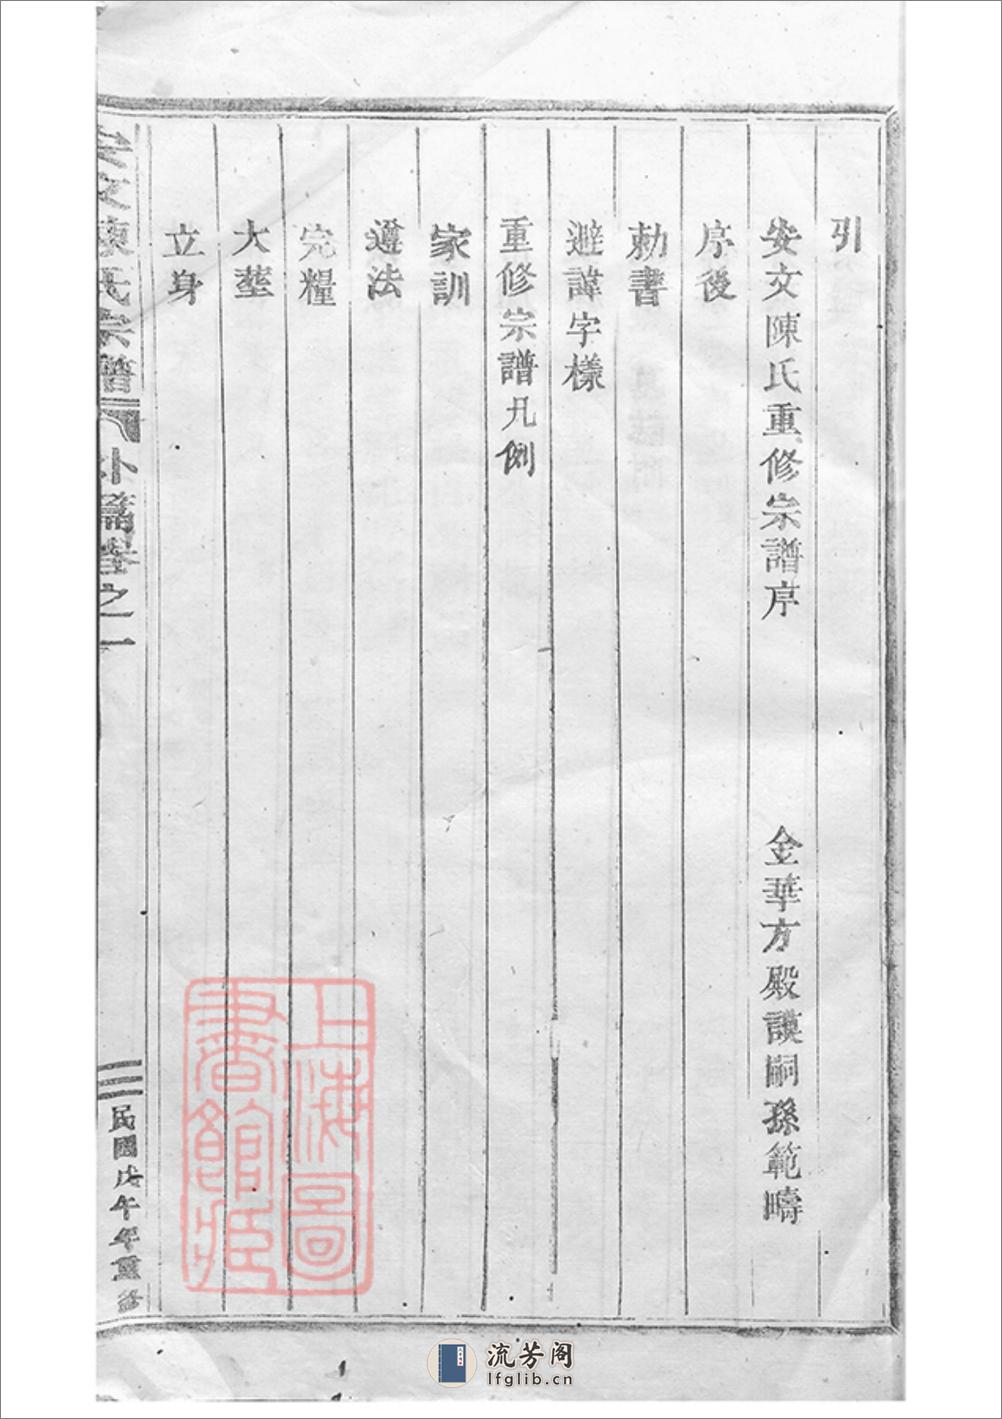 引
安文陳氏重修宗譜序　金華方殿謨嗣孫範疇
序後
勅書
避諱字樣
重修宗譜凡例
家訓
遵法
完糧
大塟
立身
安文陳氏宗譜　外篇卷之一　三　民國戊午年重修
上海圖書館藏
流芳阁
lfglib.cn